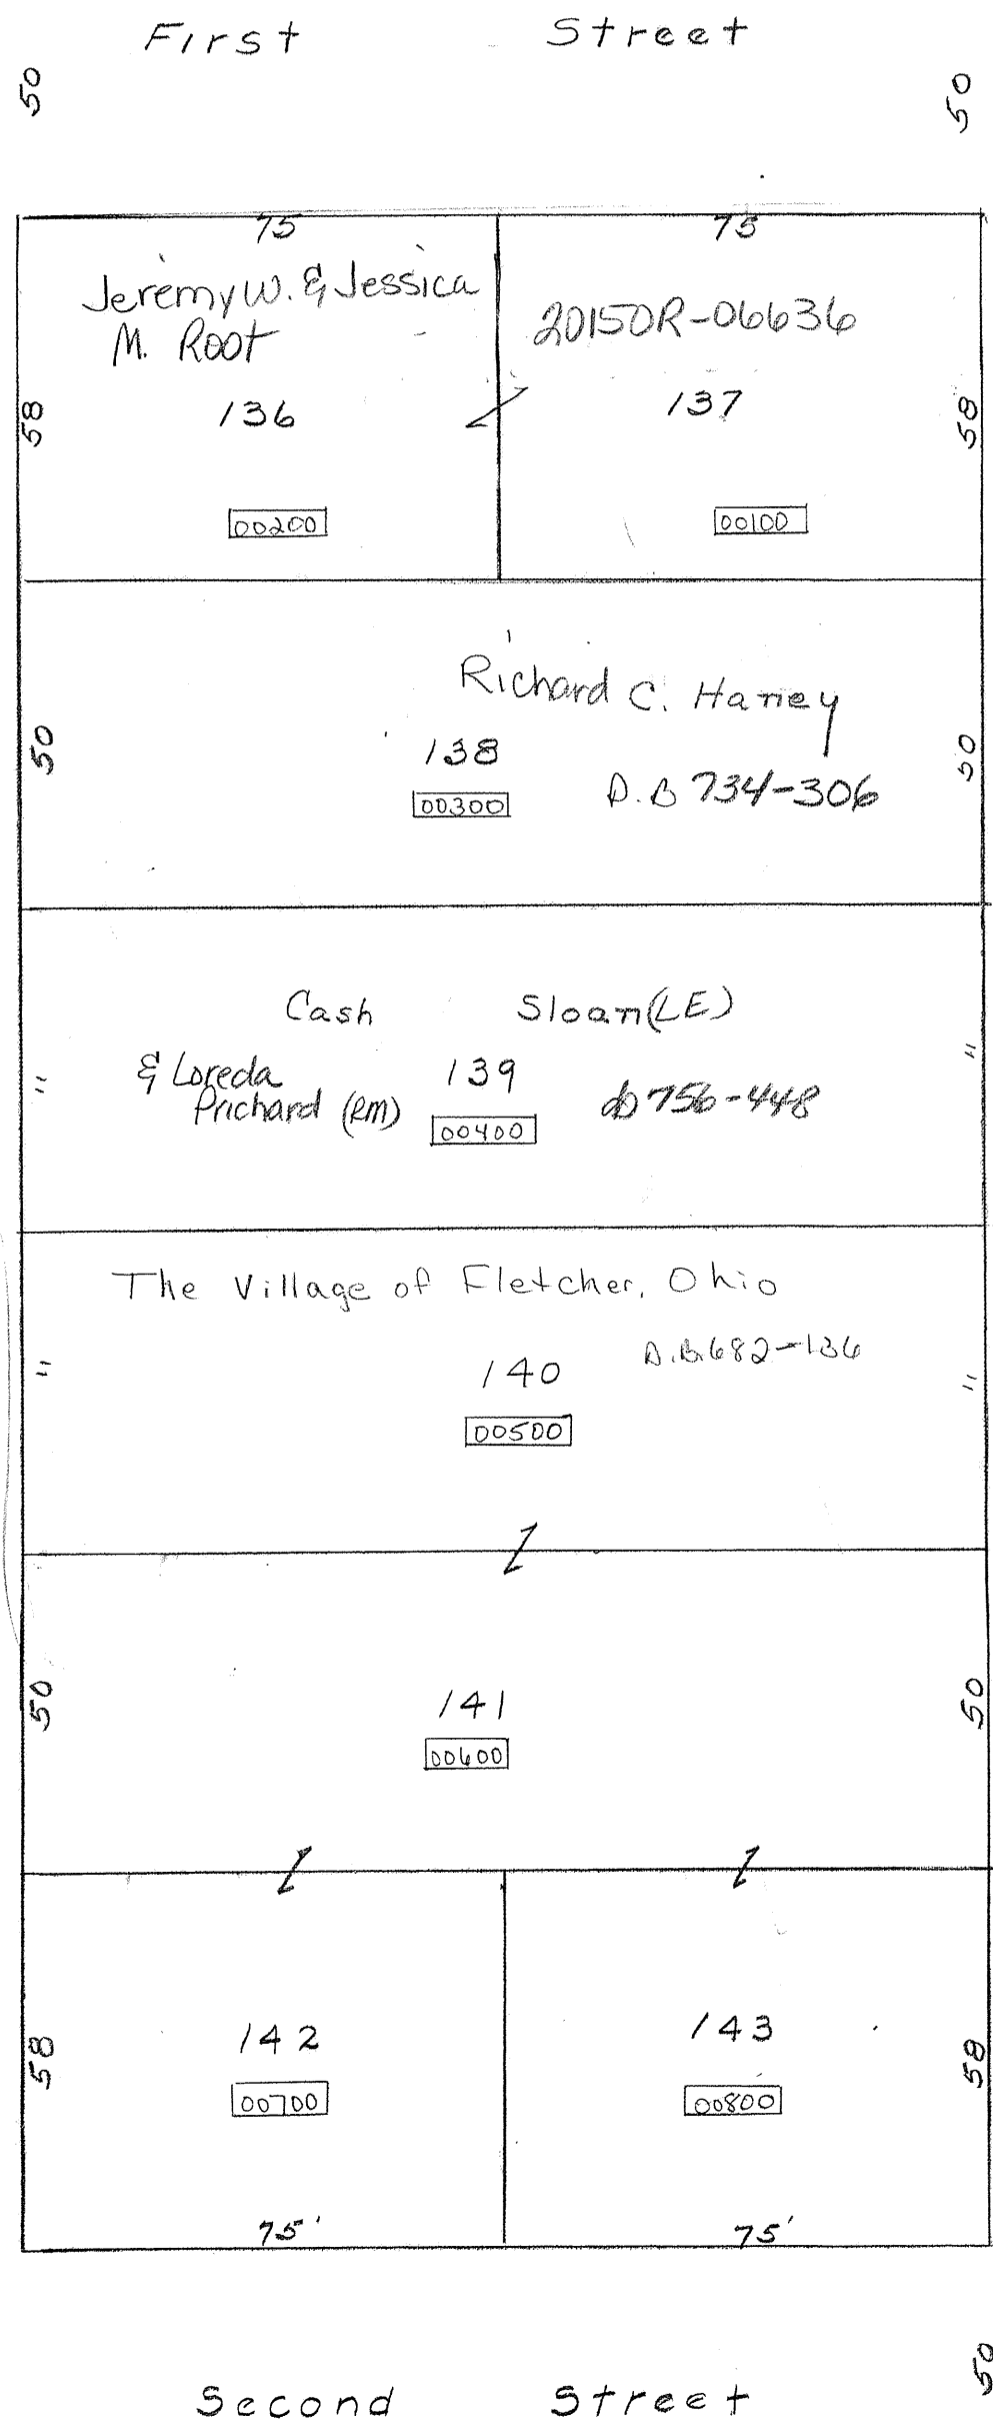 First Street
50 50
75 75
Jeremy W. & Jessica
M. Root
20150R-06636
58 136 137 58
00200 00100
Richard C. Harvey
50 138 50
00300 D.B 734-306
Cash Sloan (LE)
" & Loreda 139 "
Prichard (RM) db 756-448
00400
The Village of Fletcher, Ohio
D.B. 682-136
" 140 "
00500
50 141 50
00600
58 142 143 58
00700 00800
75' 75'
50
Second Street